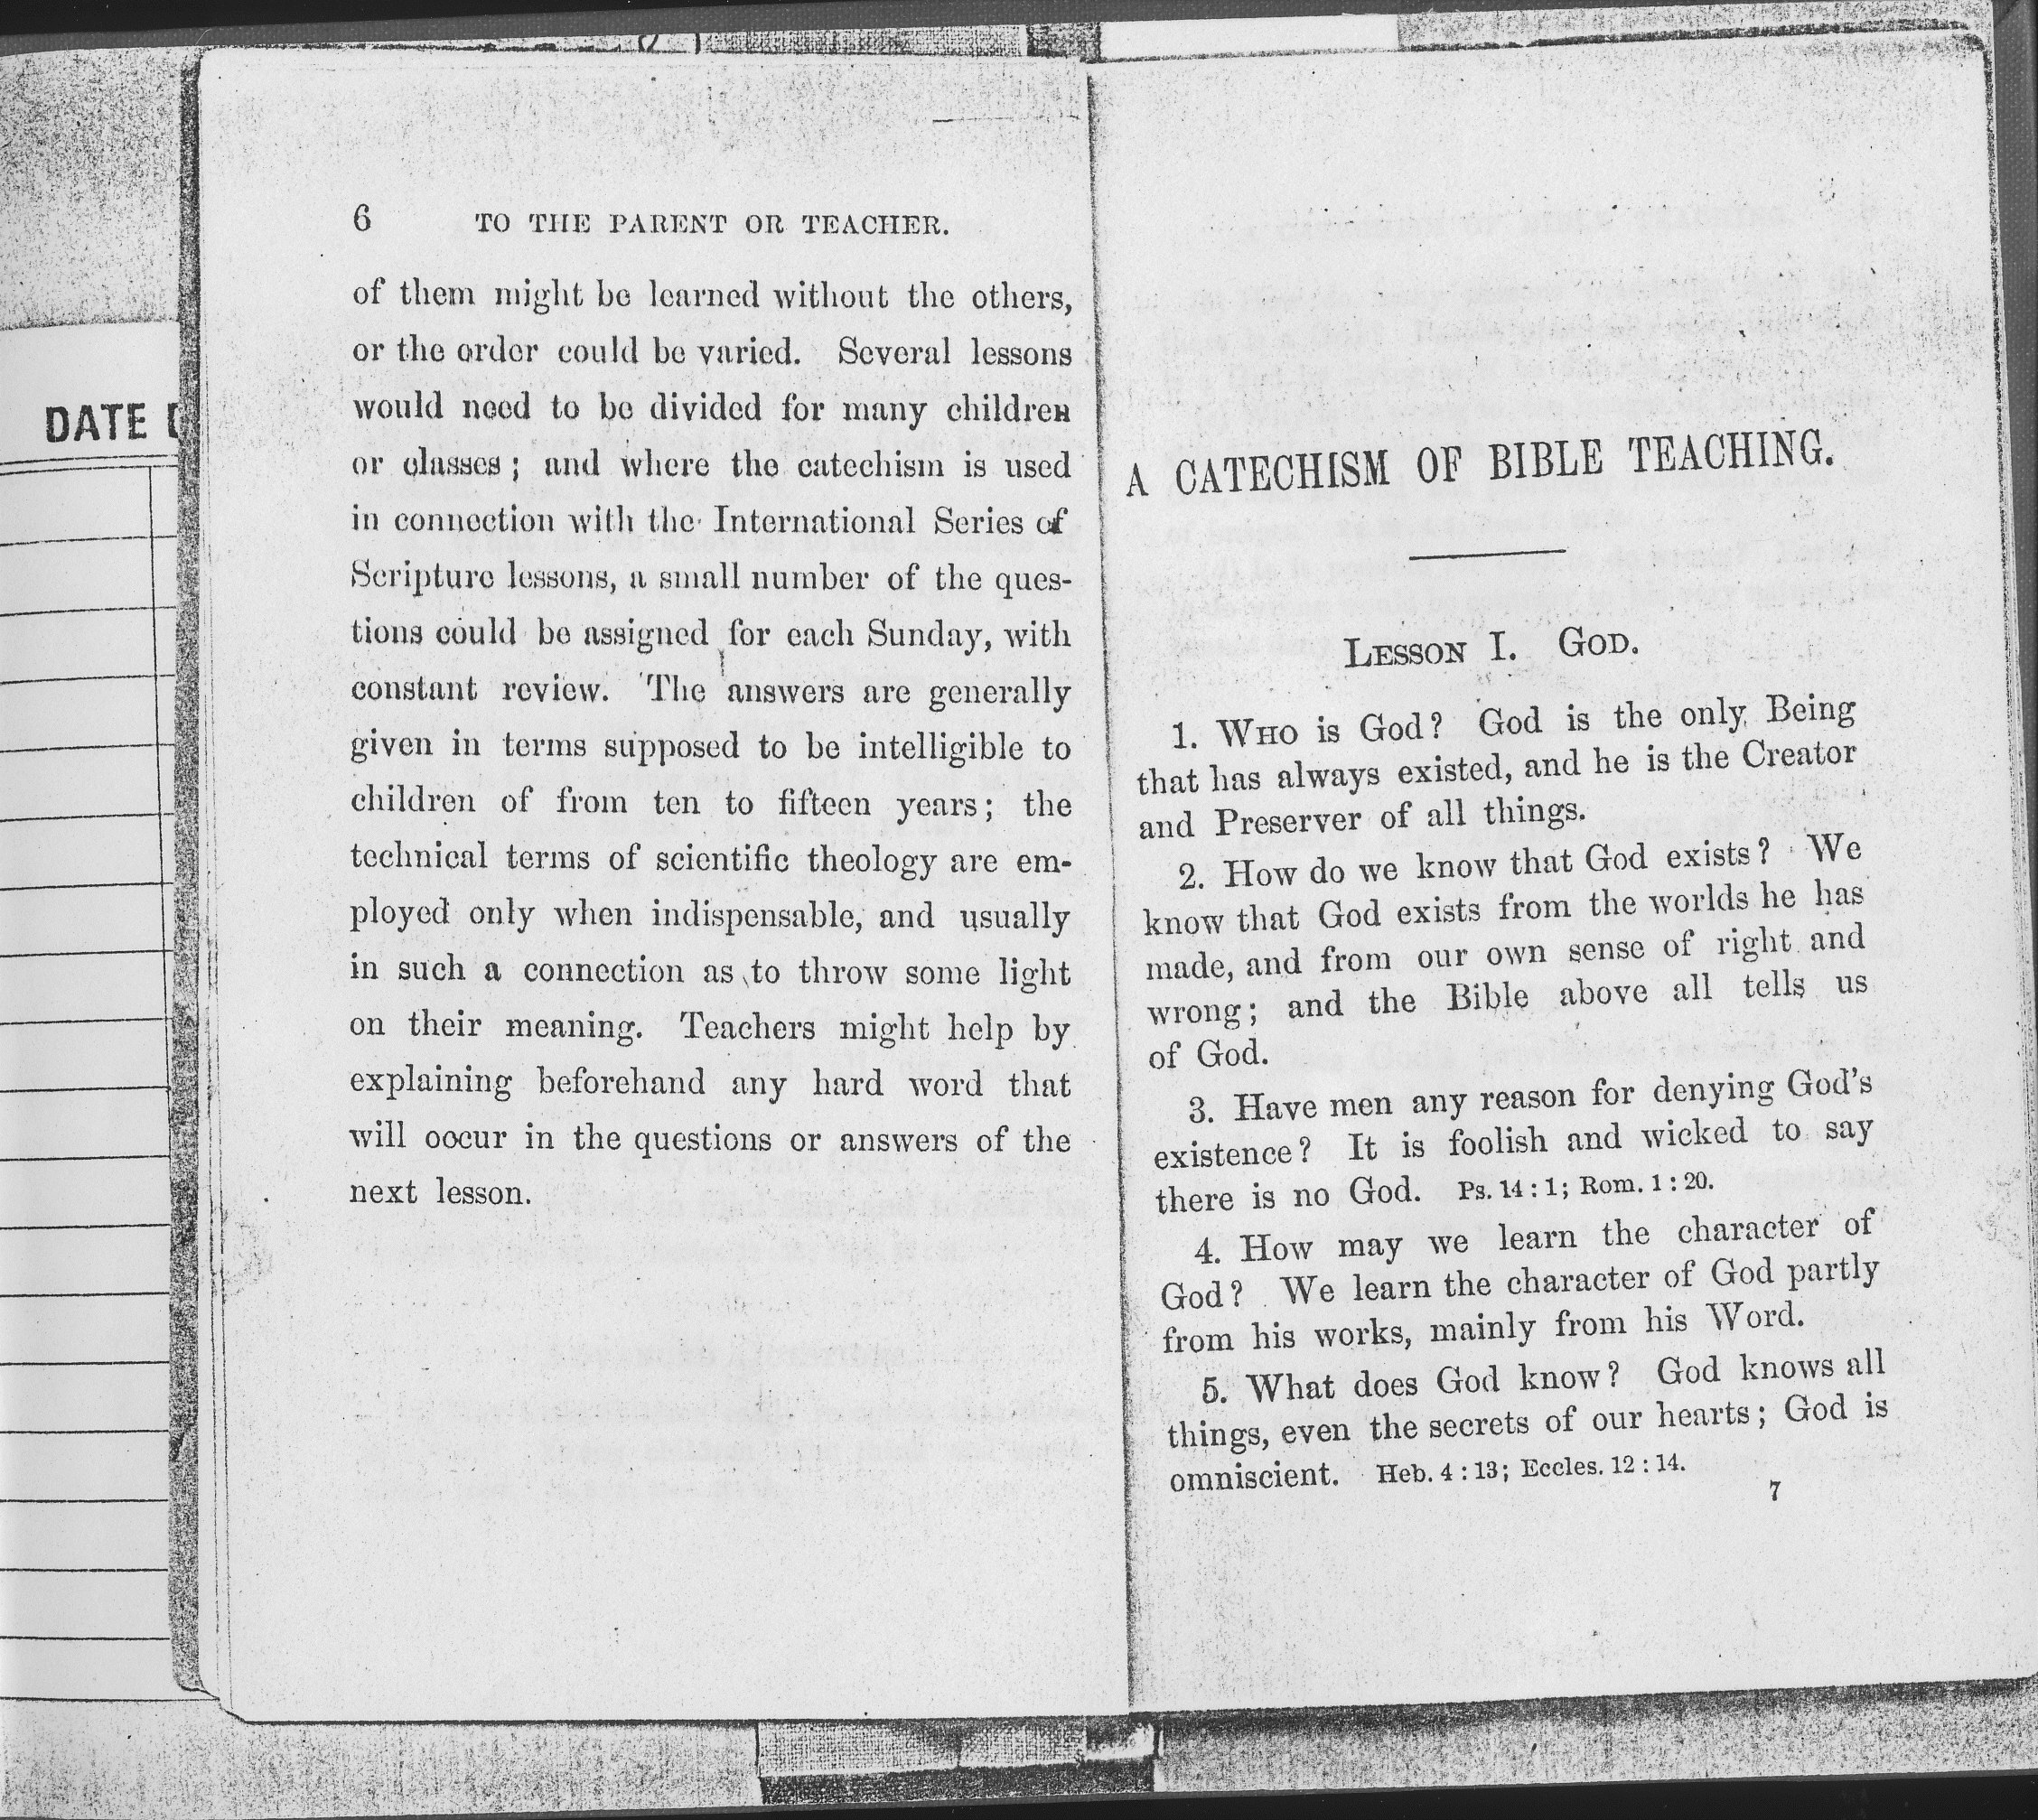 DATE D
6 TO THE PARENT OR TEACHER.
of them might be learned without the others,
or the order could be varied. Several lessons
would need to be divided for many children
or classes; and where the catechism is used
in connection with the International Series of
Scripture lessons, a small number of the ques-
tions could be assigned for each Sunday, with
constant review. The answers are generally
given in terms supposed to be intelligible to
children of from ten to fifteen years; the
technical terms of scientific theology are em-
ployed only when indispensable, and usually
in such a connection as to throw some light
on their meaning. Teachers might help by
explaining beforehand any hard word that
will occur in the questions or answers of the
next lesson.
A CATECHISM OF BIBLE TEACHING.
LESSON I. GOD.
1. WHO is God? God is the only Being
that has always existed, and he is the Creator
and Preserver of all things.
2. How do we know that God exists? We
know that God exists from the worlds he has
made, and from our own sense of right and
wrong; and the Bible above all tells us
of God.
3. Have men any reason for denying God's
existence? It is foolish and wicked to say
there is no God. Ps. 14:1; Rom. 1:20.
4. How may we learn the character of
God? We learn the character of God partly
from his works, mainly from his Word.
5. What does God know? God knows all
things, even the secrets of our hearts; God is
omniscient. Heb. 4:13; Eccles. 12:14.
7